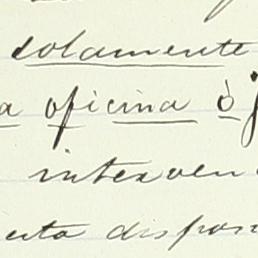 solamente
a oficina ò j
interven
esta dispos